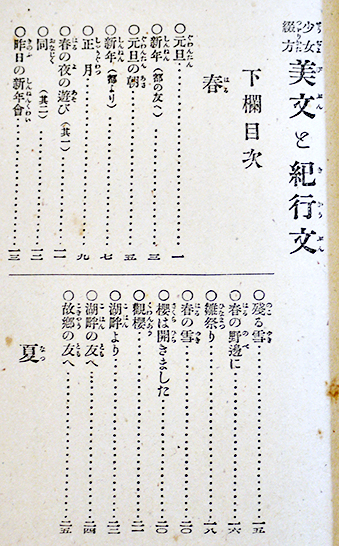 少女綴方 美文と紀行文
下欄目次
春
〇元旦……一
〇新年(都の友へ)……三
〇元旦の朝……五
〇新年(都より)……七
〇正月……九
〇春の夜の遊び(其一)……一一
〇同(其二)……一二
〇昨日の新年會……一三
〇殘る雪……一五
〇春の野邊に……一六
〇雛祭り……一八
〇春の雪……二〇
〇櫻は開きました……二〇
〇觀櫻……二一
〇湖畔より……二三
〇湖畔の友へ……二四
〇故鄉の友へ……二五
夏